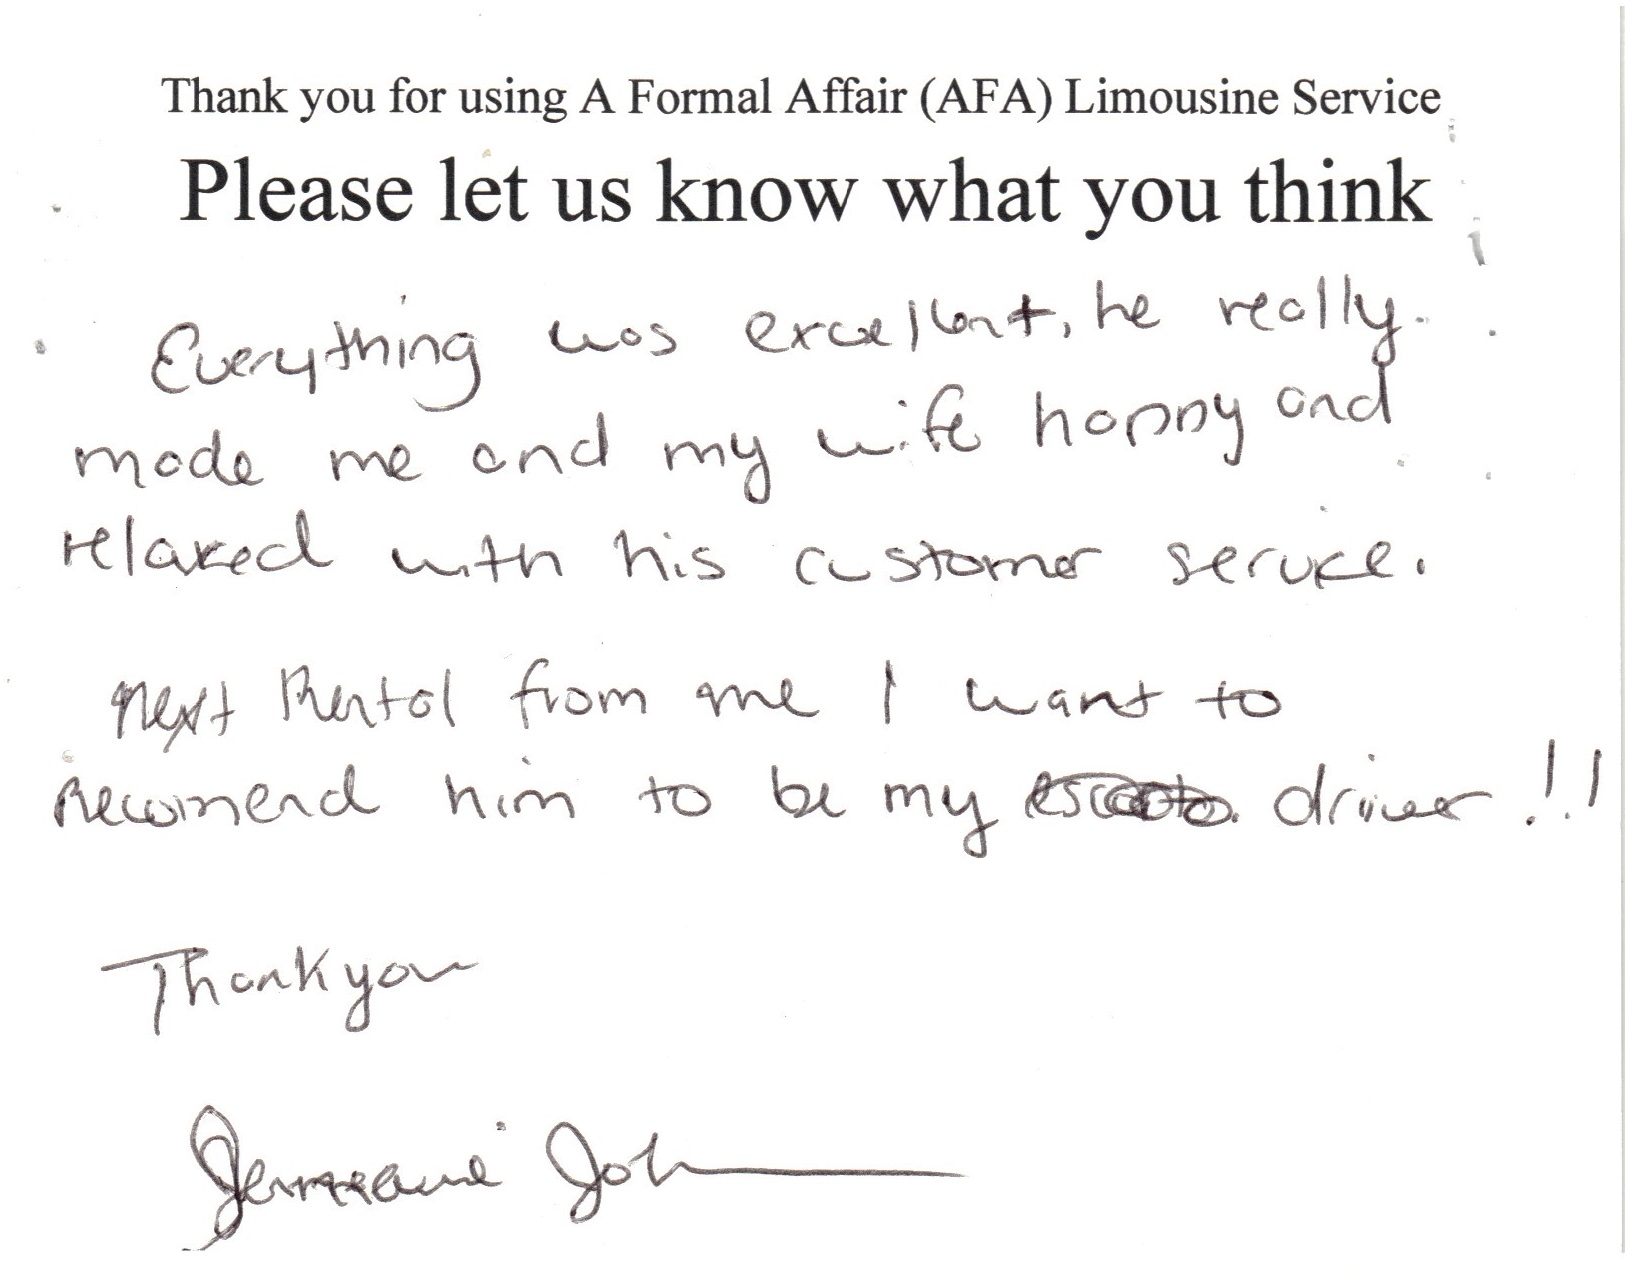 Thank you for using A Formal Affair (AFA) Limousine Service
Please let us know what you think
Everything was excellent, he really
made me and my wife happy and
relaxed with his customer service.
next Rental from me I want to
Recomend him to be my driver !!!
Thank you
Jermaine